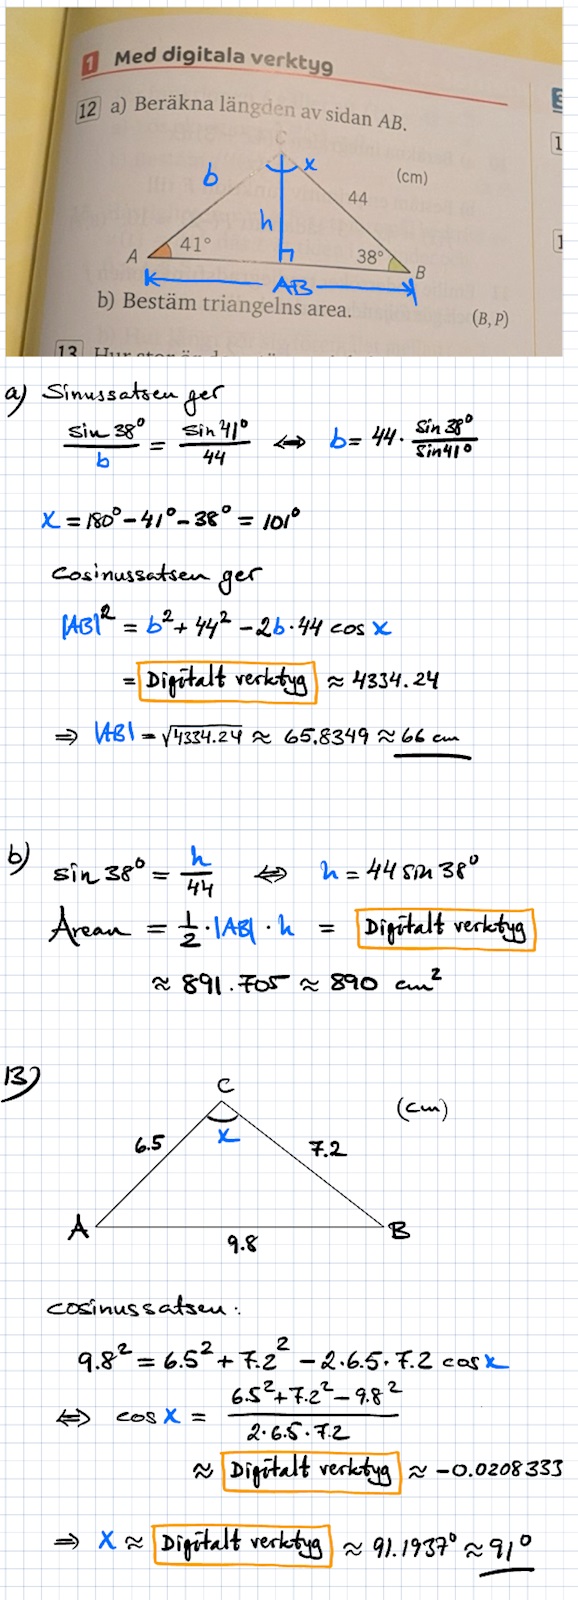 1 Med digitala verktyg
12 a) Beräkna längden av sidan AB.
C
b x (cm)
44
h
A 41° 38° B
AB
b) Bestäm triangelns area. (B, P)
13
a) Sinussatsen ger
sin 38° / b = sin 41° / 44 ⇔ b = 44 · sin 38° / sin 41°
x = 180° - 41° - 38° = 101°
Cosinussatsen ger
|AB|² = b² + 44² - 2b·44 cos x
= Digitalt verktyg ≈ 4334.24
⇒ |AB| = √4334.24 ≈ 65.8349 ≈ 66 cm
b) sin 38° = h / 44 ⇔ h = 44 sin 38°
Arean = 1/2 · |AB| · h = Digitalt verktyg
≈ 891.705 ≈ 890 cm²
13)
C
(cm)
x
6.5 7.2
A B
9.8
cosinussatsen:
9.8² = 6.5² + 7.2² - 2·6.5·7.2 cos x
⇔ cos x = 6.5² + 7.2² - 9.8² / 2·6.5·7.2
≈ Digitalt verktyg ≈ -0.0208333
⇒ x ≈ Digitalt verktyg ≈ 91.1937° ≈ 91°